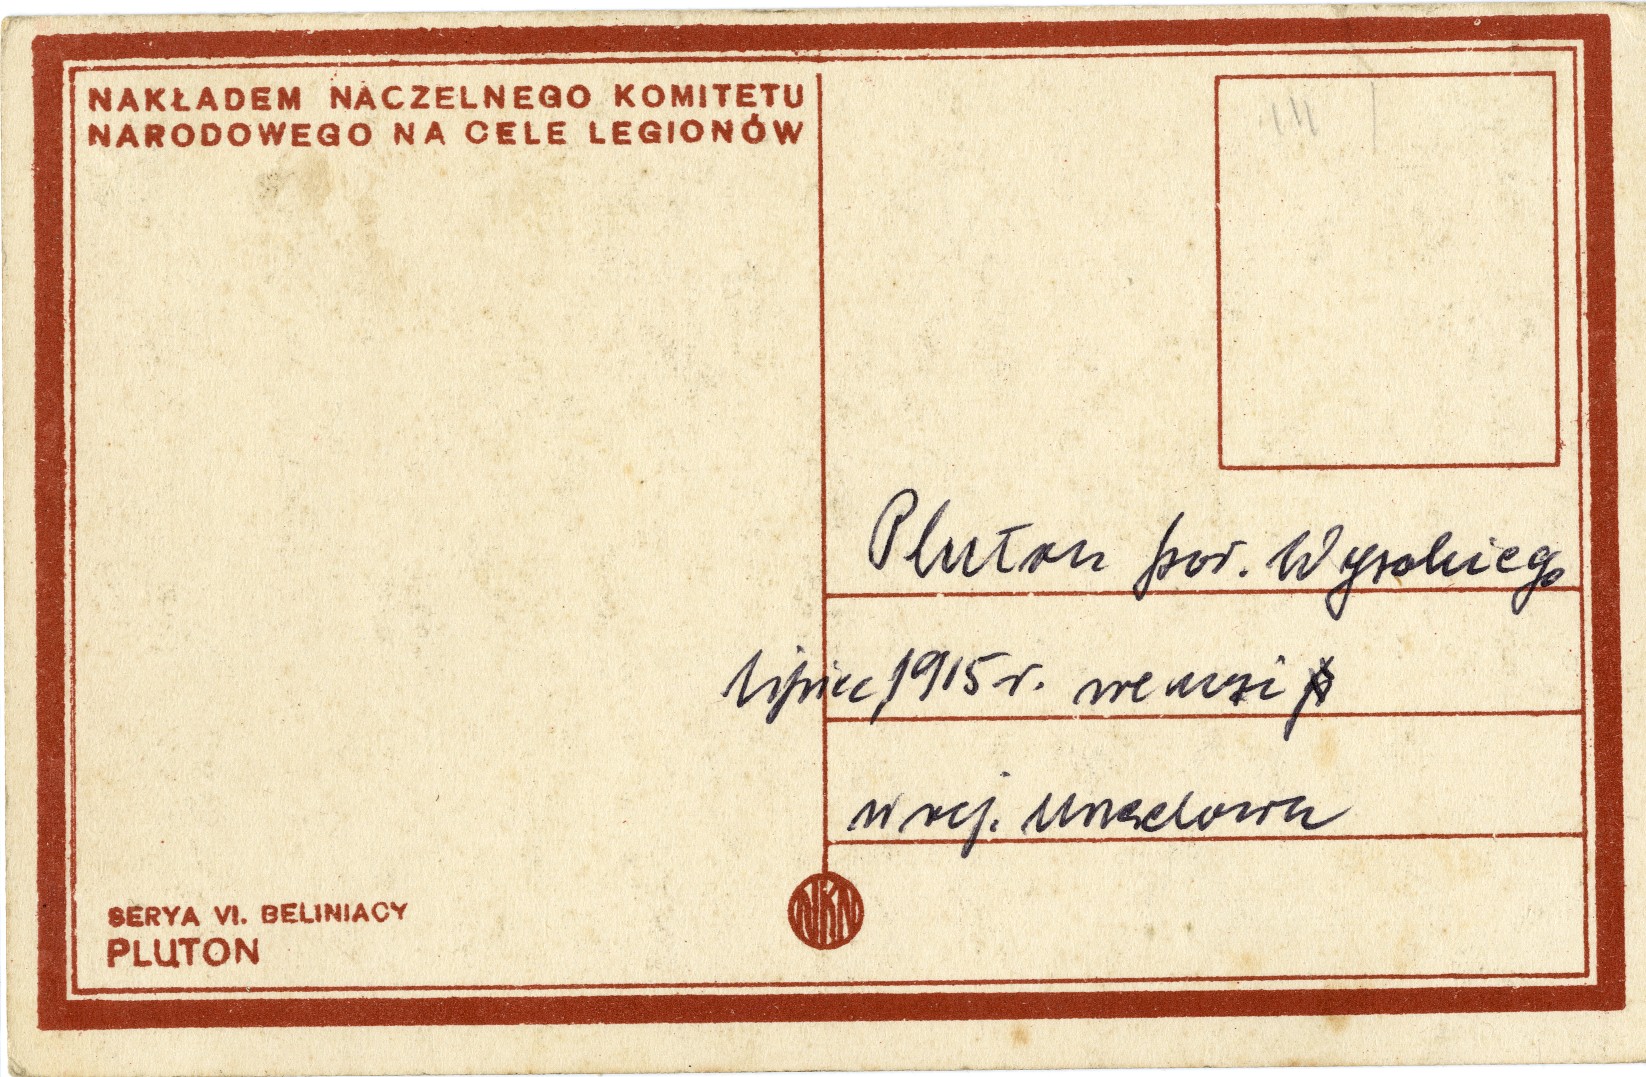 NAKŁADEM NACZELNEGO KOMITETU
NARODOWEGO NA CELE LEGIONÓW
Pluton por. Wysokiego
lipiec, 1915 r. we wsi
w rej. Urzędowa
SERYA VI. BELINIACY
PLUTON
NKN